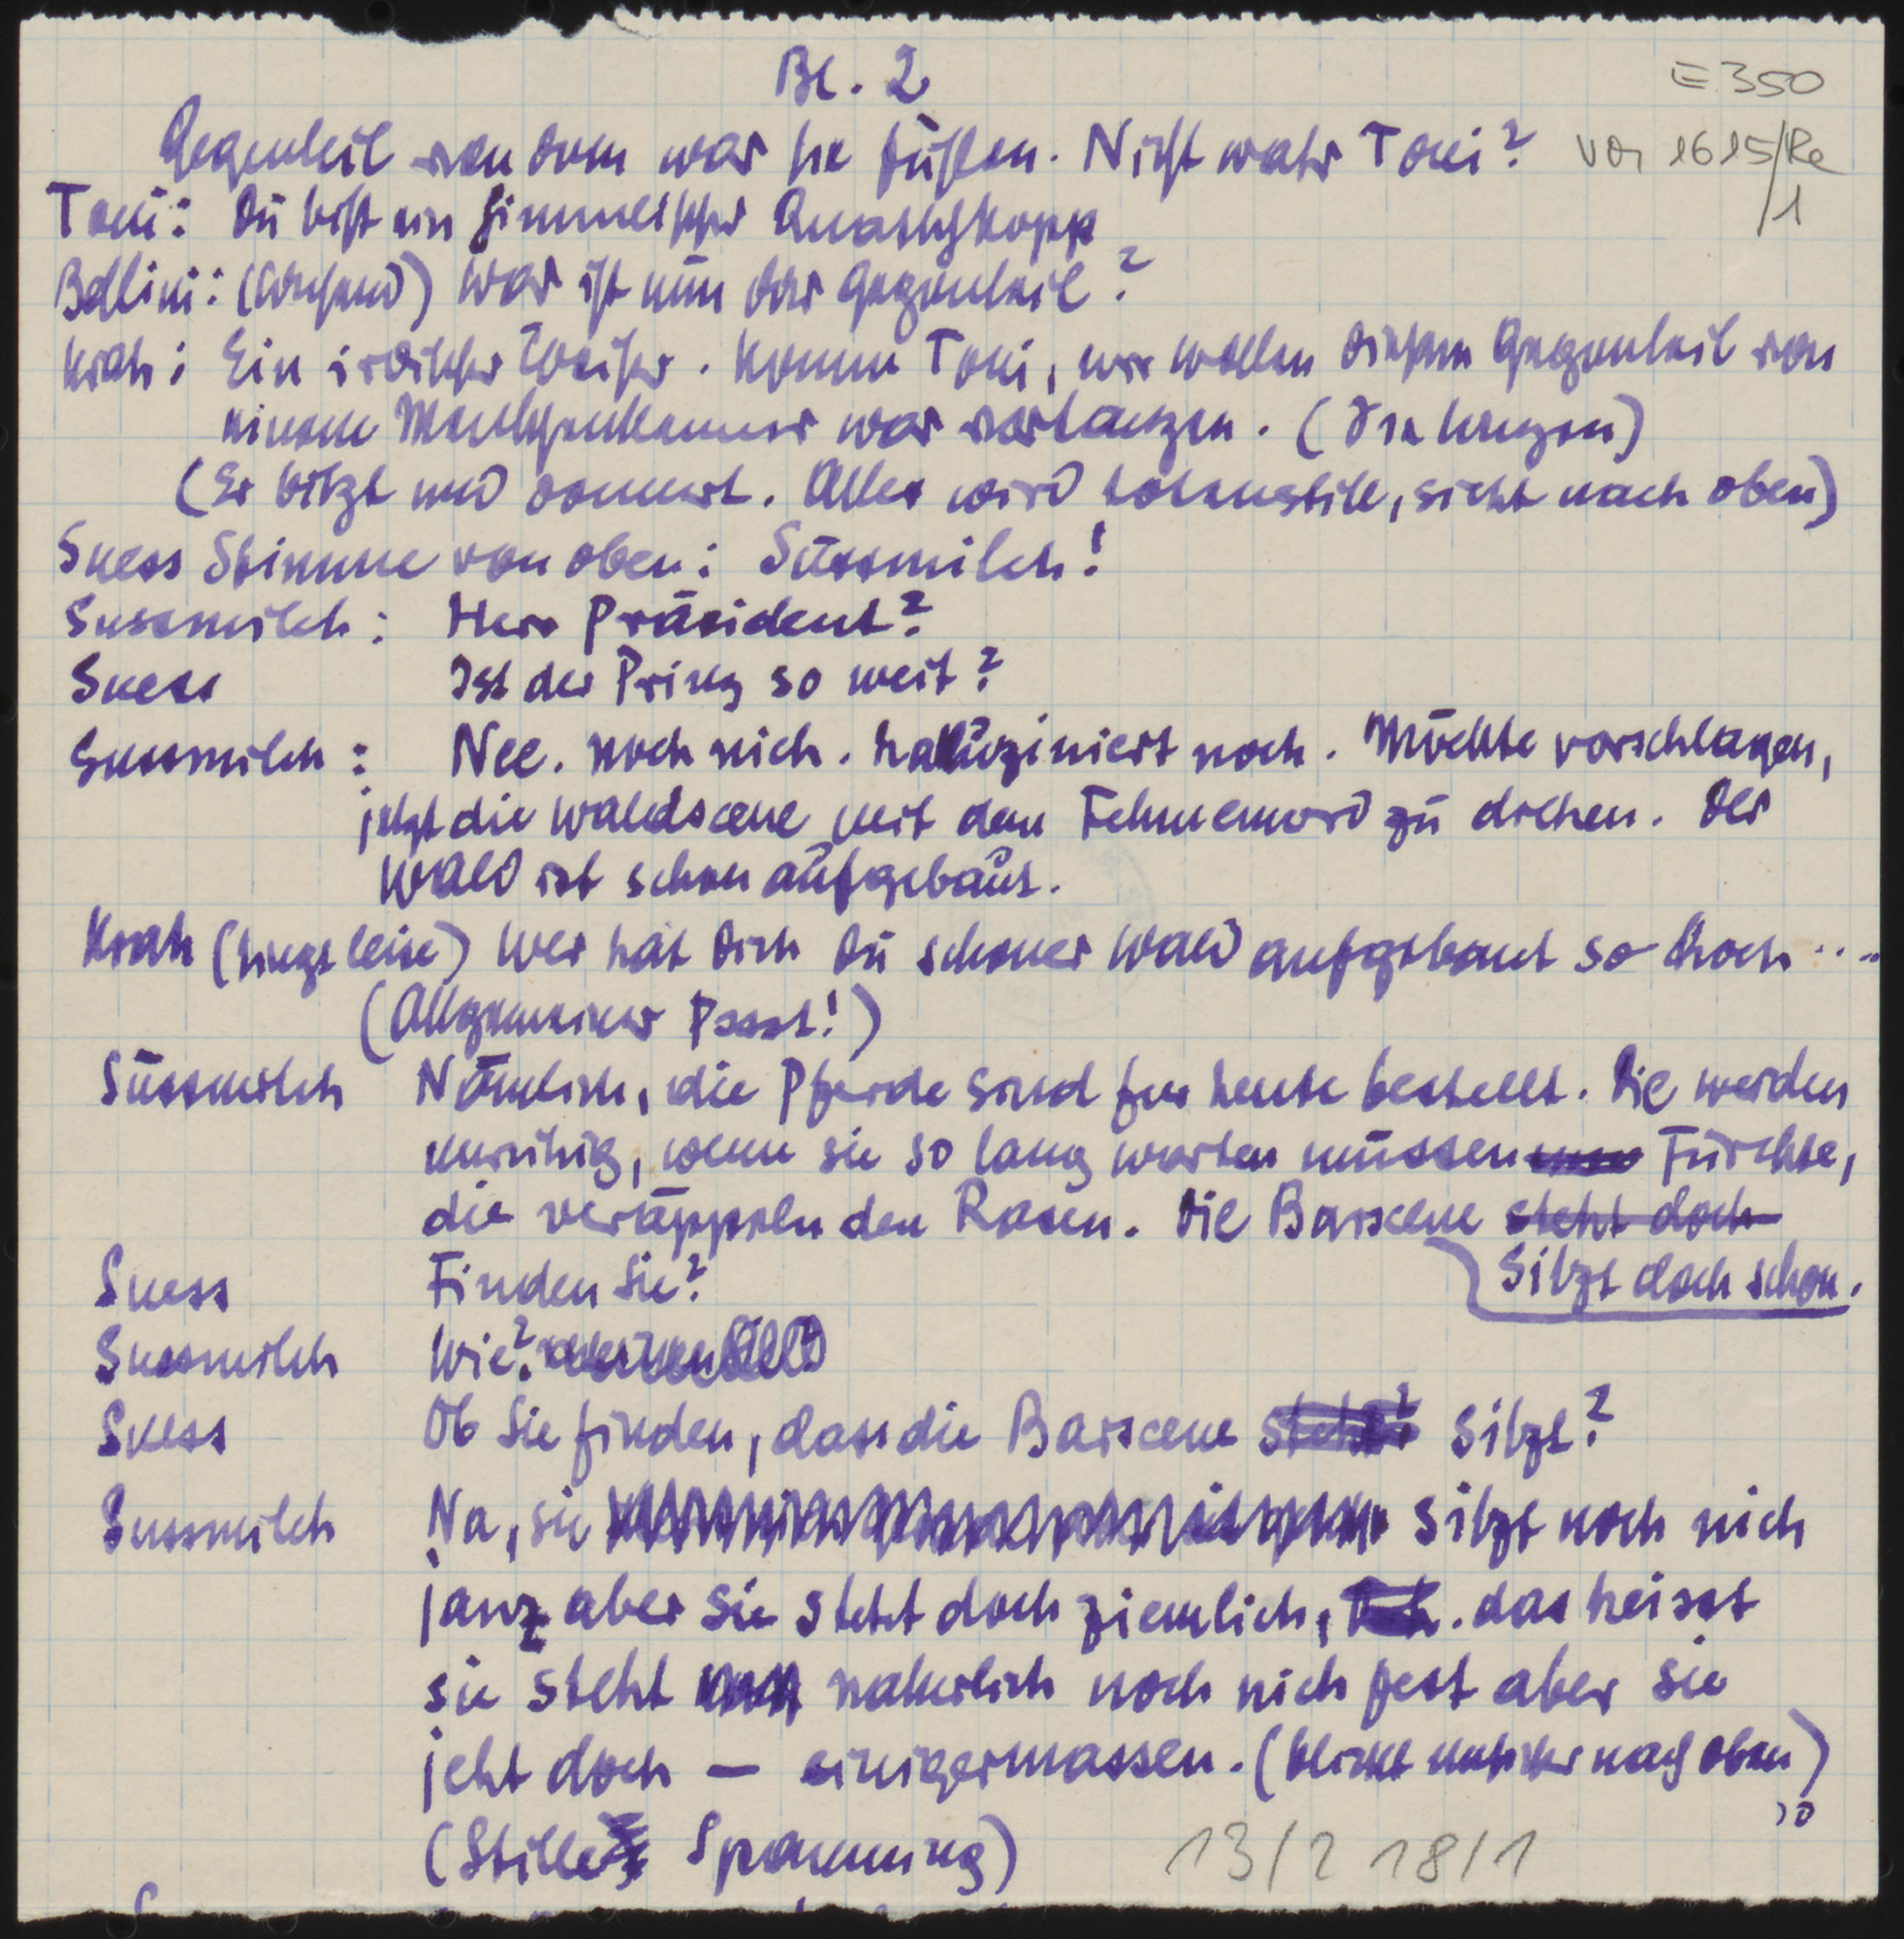 Bl. 2
E 350
Gegenteil von dem was sie fühlen. Nicht wahr Toni?
vor 1615/Re
/1
Toni: Du bist ein himmlischer Quatschkopp
Bellini: (lachend) Was ist nun das Gegenteil?
Krah: Ein irdischer Weiser. Komm Toni, wir wollen diesem Gegenteil von
einem Menschenkenner was vortanzen. (Sie tanzen)
(Es blitzt und donnert. Alles wird totenstill, sieht nach oben)
Suess Stimme von oben: Süssmilch!
Sussmilch: Herr Präsident?
Suess Ist der Prinz so weit?
Sussmilch: Nee. noch nich. halluziniert noch. Möchte vorschlagen,
jetzt die Waldscene mit dem Fehmemord zu drehen. Der
Wald ist schon aufgebaut.
Krah (singt leise) Wer hat Dich Du schöner Wald aufgebaut so hoch ....
(Allgemeines Pssst!)
Süssmilch Nämlich, die Pferde sind für heute bestellt. Die werden
unruhig, wenn sie so lang warten müssen Fürchte,
die veräppeln den Rasen. Die Barscene steht doch
Sitzt doch schon.
Suess Finden Sie?
Sussmilch Wie?
Suess Ob Sie finden, dass die Barscene steht? sitzt?
Sussmilch Na, sie sitzt noch nich
janz aber sie steht doch ziemlich, . das heisst
sie steht naturlich noch nich fest aber sie
jeht doch — einigermassen. (blickt nach oben)
(Stille Spannung)
13/2 18/1